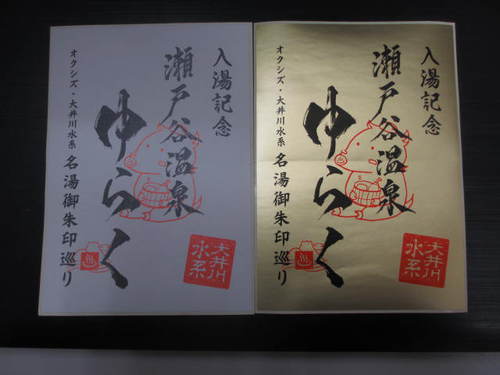 入湯記念
瀬戸谷温泉
ゆらく
オクシズ・大井川水系 名湯御朱印巡り
大井川
水系
入湯記念
瀬戸谷温泉
ゆらく
オクシズ・大井川水系 名湯御朱印巡り
大井川
水系